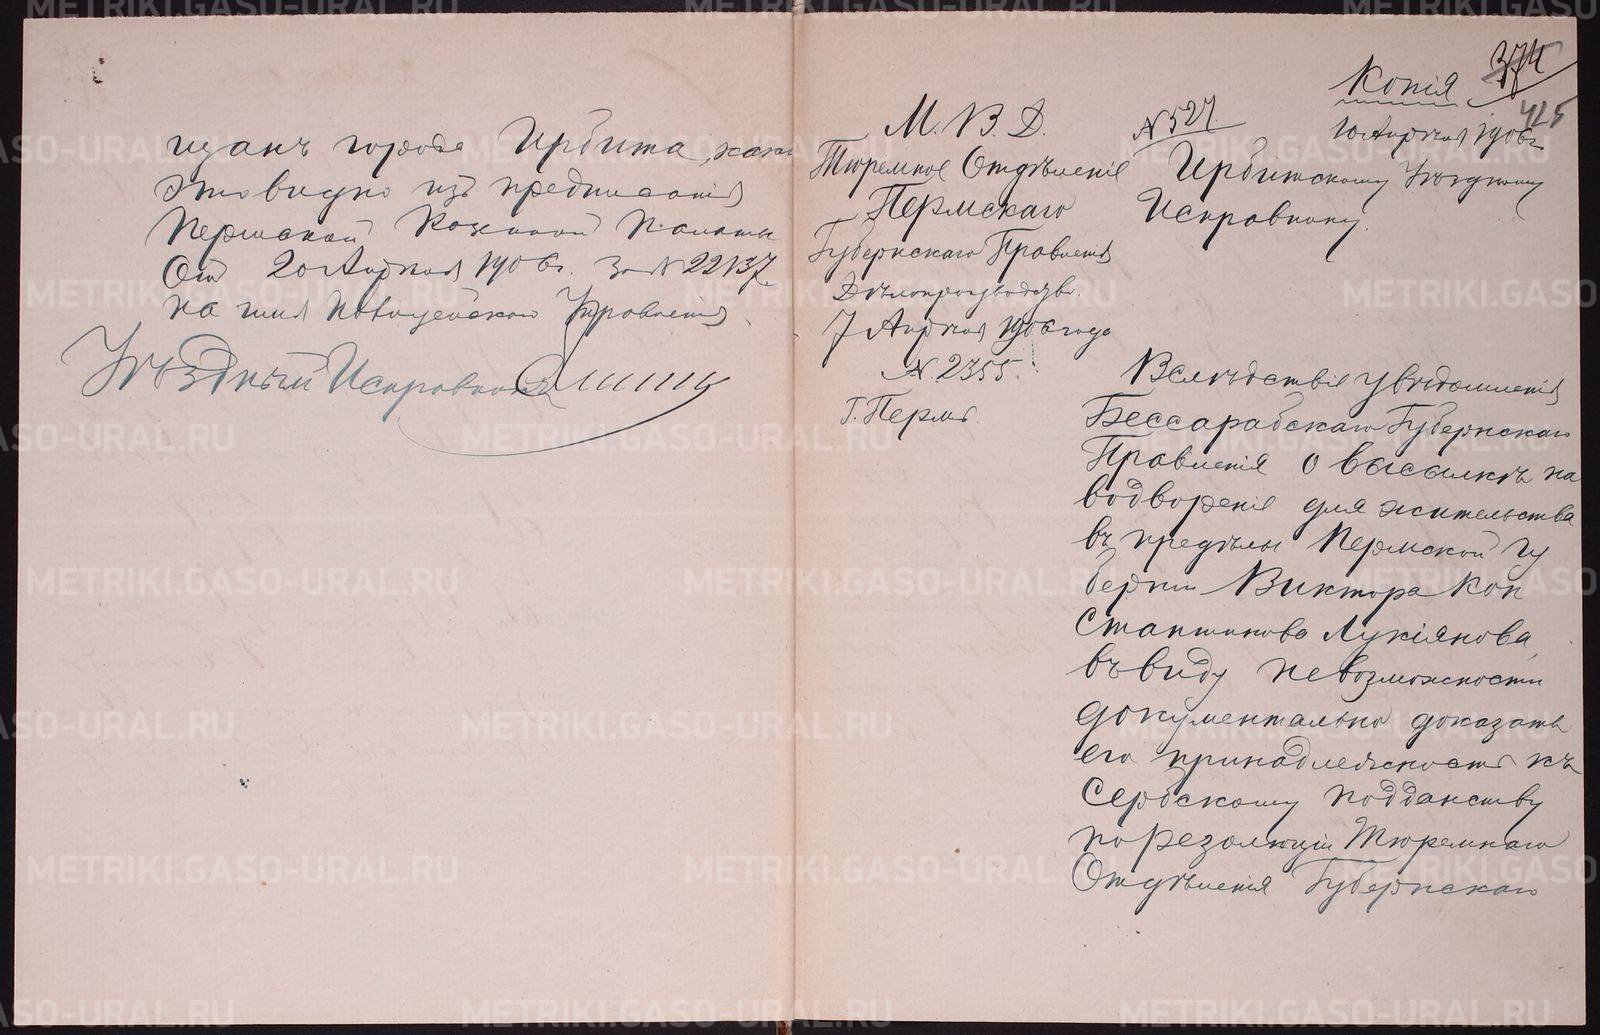 щанъ города Ирбита, какъ
это видно изъ предписанія
Пермской Казенной Палаты
Отъ 20 Апрѣля 1906 г. За № 22137
на имя Полицейскаго Управленія
Уѣздный Исправникъ
Копія
374
425
М. В. Д.
Тюремное Отдѣленіе
Пермскаго
Губернскаго Правленія
Дѣлопроизводство.
7 Апрѣля 1906 года
№ 2355.
Г. Пермь.
№ 527.
10 Апрѣля 1906 г.
Ирбитскому Уѣздному
Исправнику.
Вслѣдствіе увѣдомленія
Бессарабскаго Губернскаго
Правленія о высылкѣ на
водвореніе для жительства
въ предѣлы Пермской Гу
берніи Виктора Кон
стантинова Лукіянова,
въ виду невозможности
документально доказать
его принадлежность къ
Сербскому подданству
по резолюціи Тюремнаго
Отдѣленія Губернскаго
METRIKI.GASO-URAL.RU